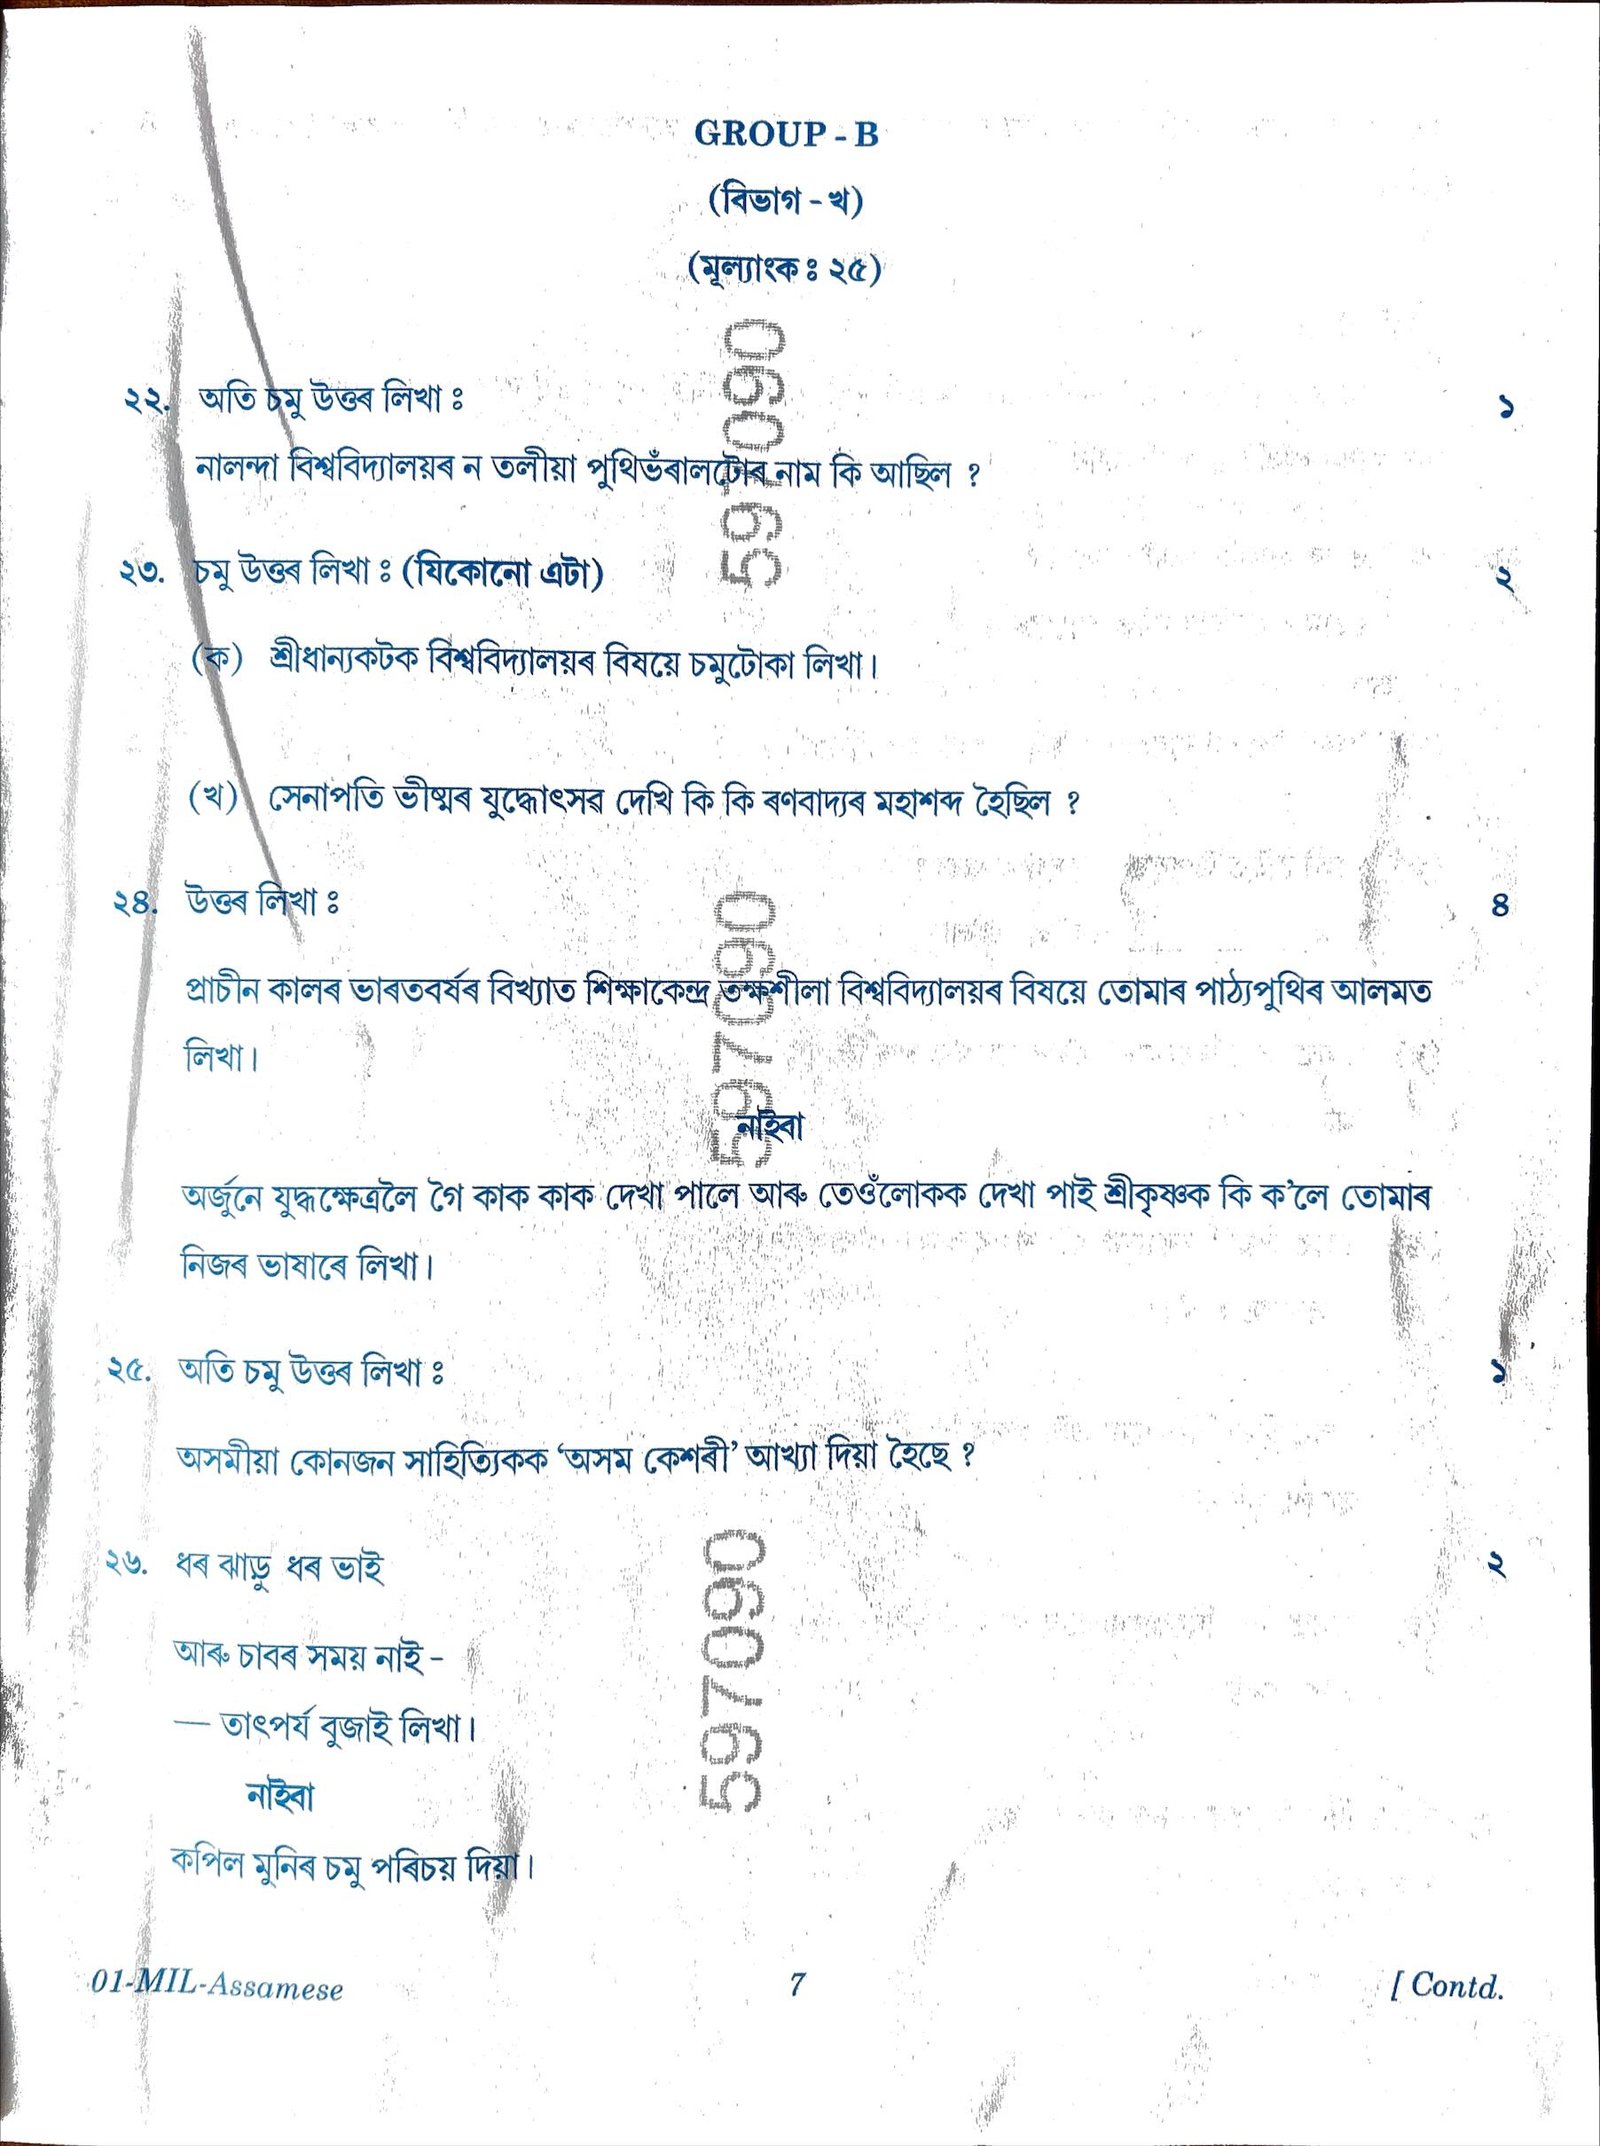 GROUP - B
(বিভাগ - খ)
(মূল্যাংক ঃ ২৫)
২২. অতি চমু উত্তৰ লিখা ঃ ১
নালন্দা বিশ্ববিদ্যালয়ৰ ন তলীয়া পুথিভঁৰালটোৰ নাম কি আছিল ?
২৩. চমু উত্তৰ লিখা ঃ (যিকোনো এটা) ২
(ক) শ্ৰীধান্যকটক বিশ্ববিদ্যালয়ৰ বিষয়ে চমুটোকা লিখা।
(খ) সেনাপতি ভীষ্মৰ যুদ্ধোৎসৱ দেখি কি কি ৰণবাদ্যৰ মহাশব্দ হৈছিল ?
২৪. উত্তৰ লিখা ঃ ৪
প্ৰাচীন কালৰ ভাৰতবৰ্ষৰ বিখ্যাত শিক্ষাকেন্দ্ৰ তক্ষশীলা বিশ্ববিদ্যালয়ৰ বিষয়ে তোমাৰ পাঠ্যপুথিৰ আলমত
লিখা।
নাইবা
অৰ্জুনে যুদ্ধক্ষেত্ৰলৈ গৈ কাক কাক দেখা পালে আৰু তেওঁলোকক দেখা পাই শ্ৰীকৃষ্ণক কি ক’লে তোমাৰ
নিজৰ ভাষাৰে লিখা।
২৫. অতি চমু উত্তৰ লিখা ঃ ১
অসমীয়া কোনজন সাহিত্যিকক ‘অসম কেশৰী’ আখ্যা দিয়া হৈছে ?
২৬. ধৰ ঝাড়ু ধৰ ভাই ২
আৰু চাবৰ সময় নাই -
— তাৎপৰ্য বুজাই লিখা।
নাইবা
কপিল মুনিৰ চমু পৰিচয় দিয়া।
01-MIL-Assamese 7 [ Contd.
597090
597090
597090